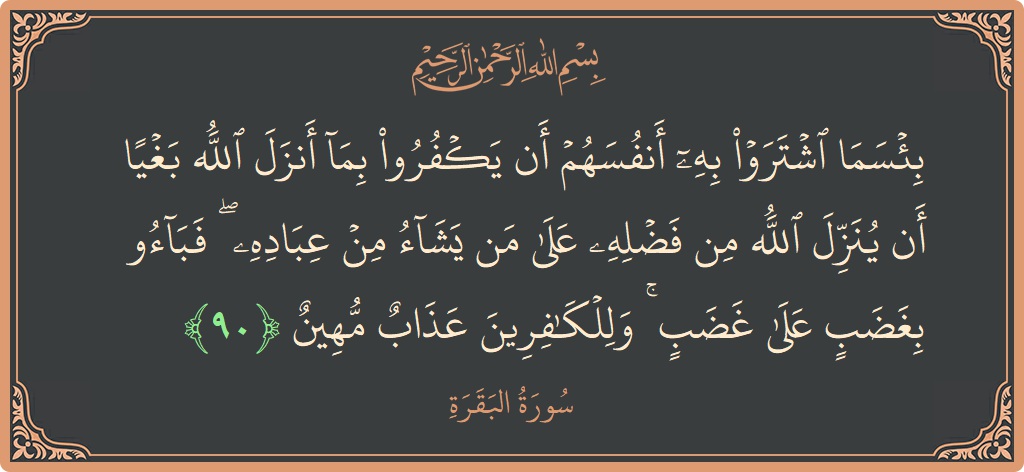 بِسْمِ اللهِ الرَّحْمٰنِ الرَّحِيْمِ
بِئۡسَمَا ٱشۡتَرَوۡاْ بِهِۦٓ أَنفُسَهُمۡ أَن يَكۡفُرُواْ بِمَآ أَنزَلَ ٱللَّهُ بَغۡيًا
أَن يُنَزِّلَ ٱللَّهُ مِن فَضۡلِهِۦ عَلَىٰ مَن يَشَآءُ مِنۡ عِبَادِهِۦۖ فَبَآءُو
بِغَضَبٍ عَلَىٰ غَضَبٍۚ وَلِلۡكَٰفِرِينَ عَذَابٌ مُّهِينٌ ﴿٩٠﴾
سُورَةُ البَقَرَةِ